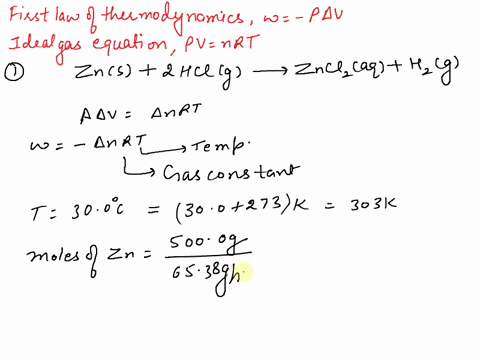 First law of thermodynamics, w = - PΔV
Ideal gas equation, PV = nRT
① Zn(s) + 2HCl(g) → ZnCl2(aq) + H2(g)
PΔV = ΔnRT
w = - ΔnRT → Temp.
→ Gas constant
T = 30.0°C = (30.0+273)K = 303K
moles of Zn = 500.0g
65.38g/